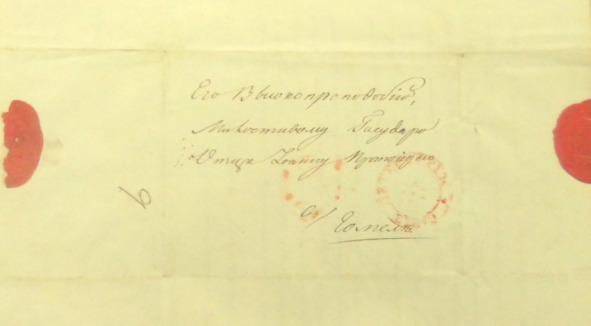 Его Высокопреподобію,
Милостивому Государю
Отцу Іоанну
въ
Гомелѣ
6